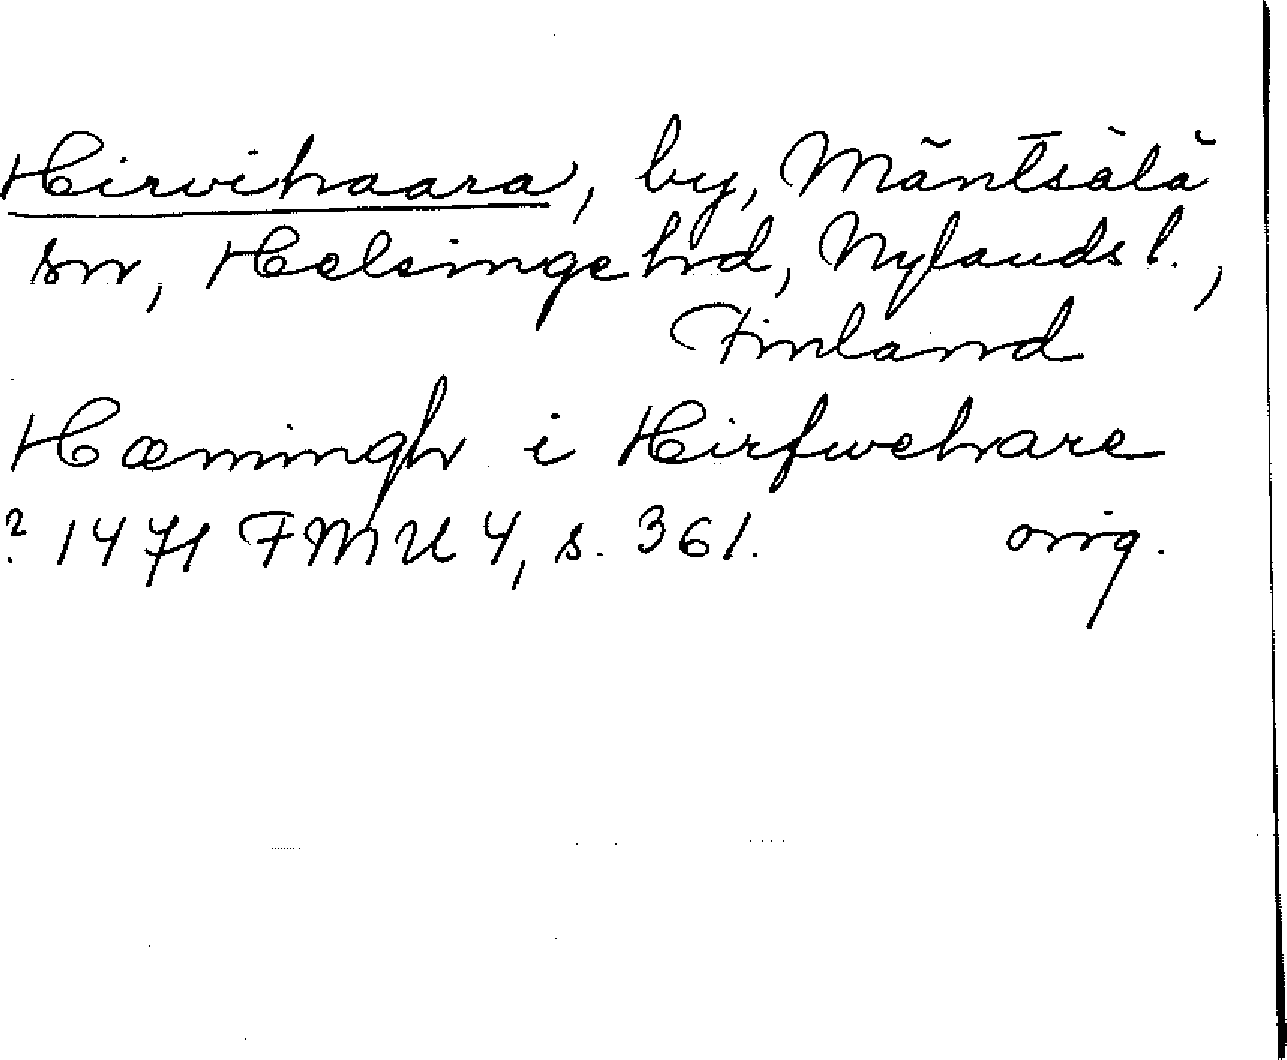 Hirvihaara, by, Mäntsälä
sn, Helsinge hd, Nylands l.,
Finland
Hæmingh i Hirfwehare
? 1471 FMU 4, s. 361. orig.